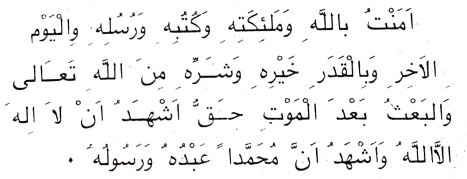 اَمَنْتُ بِاللَّهِ وَمَلَئِكَتِهِ وَكُتُبِهِ وَرُسُلِهِ وِالْيَوْمِ
الاَخِرِ وَبِالْقَدَرِ خَيْرِهِ وَشَرِّهِ مِنَ اللَّهِ تَعَالَى
وَالبَعْثُ بَعْدَ الْمَوْتِ حَقٌّ اَشْهَدُ اَنْ لاَ اِلهَ
الاَّاللَّهُ وَاَشْهَدُ اَنَّ مُحَمَّداً عَبْدُهُ وَرَسُولُهُ .